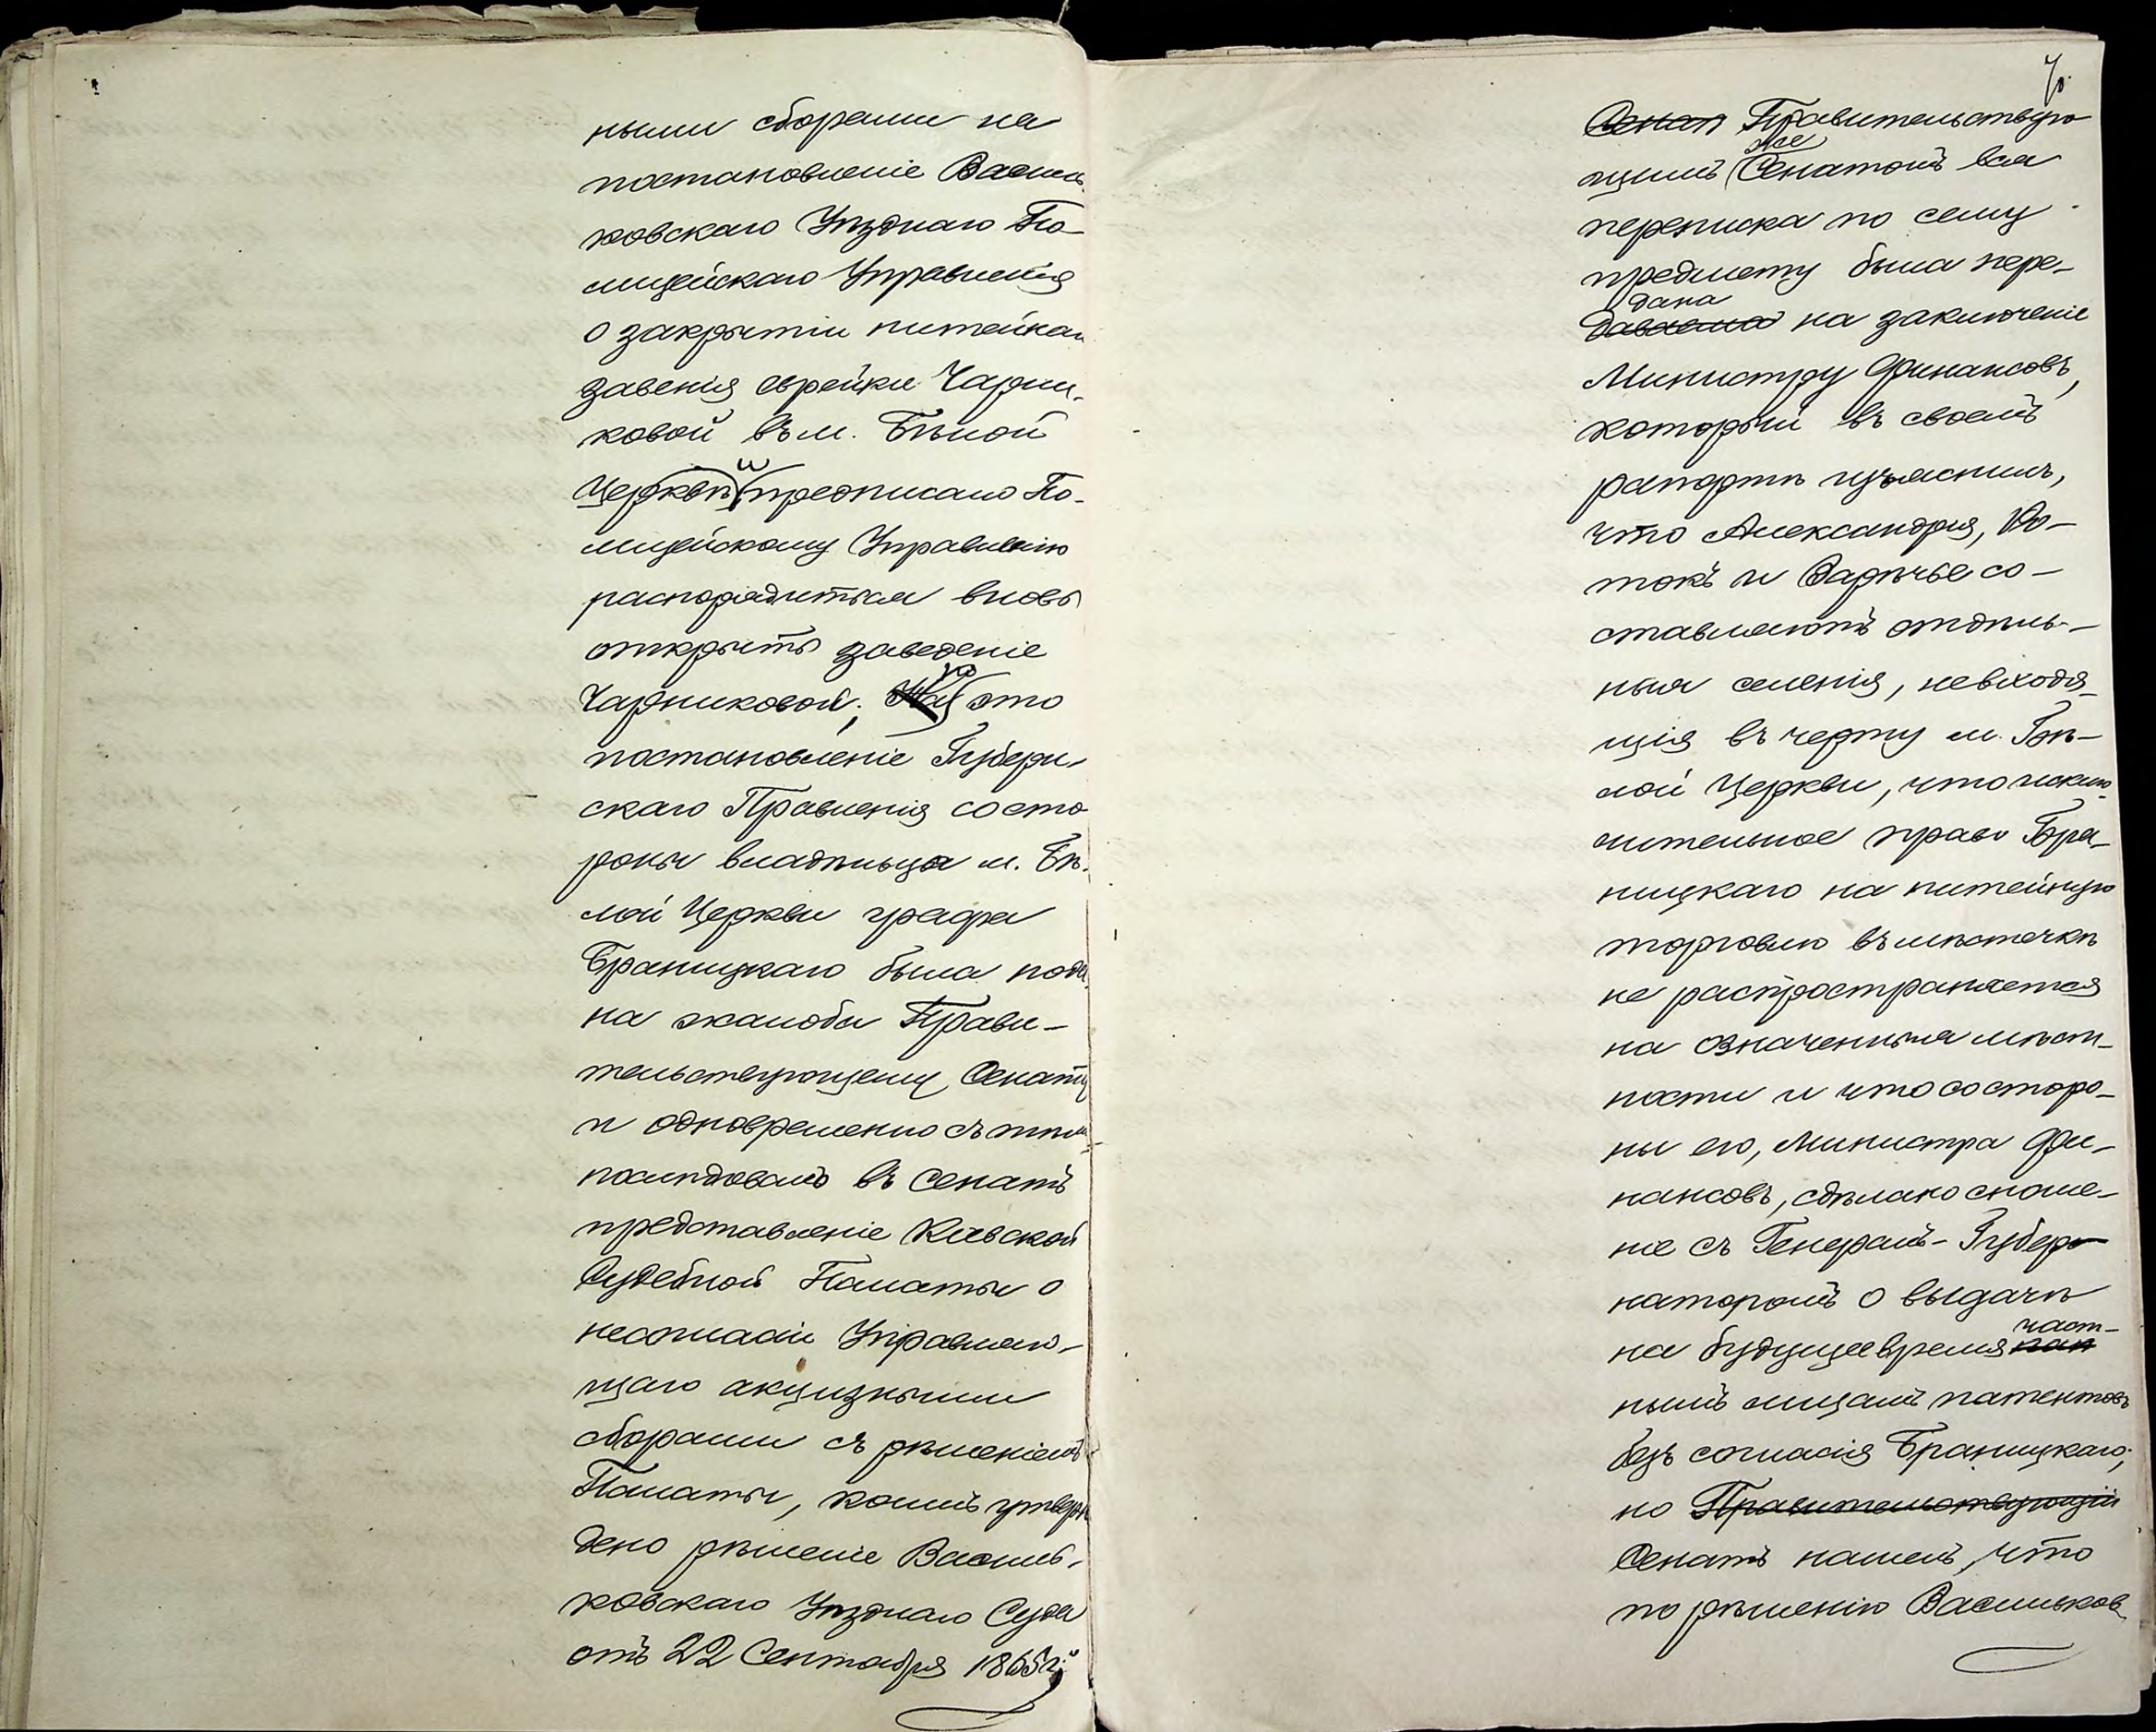 ными сборами на
постановленіе Василь
ковскаго Уѣзднаго По-
лицейскаго Управленія
о закрытіи питейнаго
завенія еврейки Чарни-
ковой въ м. Бѣлой
Церкви, и предписано По-
лицейскому Управленію
распорядиться вновь
открыть заведеніе
Чарниковой; На это
постановленіе Губерн-
скаго Правленія со сто
роны владѣльца м. Бѣ-
лой Церкви графа
Браницкаго была пода
на жалоба Прави-
тельствующему Сенату
и одновременно съ тѣмъ
послѣдовало въ Сенатъ
представленіе Кіевской
Судебной Палаты о
несогласіи Управляю-
щаго акцизными
сборами съ рѣшеніемъ
Палаты, коимъ утверж
дено рѣшеніе Василь-
ковскаго Уѣзднаго Суда
отъ 22 Сентября 1865 г.
70.
Сенат Правительствую
щимъ же Сенатомъ вся
переписка по сему
предмету была пере-
дана
на заключеніе
Министру Финансовъ,
который въ своемъ
рапортѣ изъяснилъ,
что Александрія, Ро-
токъ и Зарѣчье со-
ставляютъ отдѣль-
ныя селенія, невходя-
щія въ черту м. Бѣ-
лой Церкви, что исклю-
чительное право Бра-
ницкаго на питейную
торговлю въ мѣстечкѣ
не распространяется
на означенныя мѣст-
ности и что со сторо-
ны его, Министра Фи-
нансовъ, сдѣлано сноше-
ніе съ Генералъ-Губер-
наторомъ о выдачѣ
на будущее время част-
нымъ лицамъ патентовъ
безъ согласія Браницкаго;
но Правительствующій
Сенатъ нашелъ, что
по рѣшенію Васильков